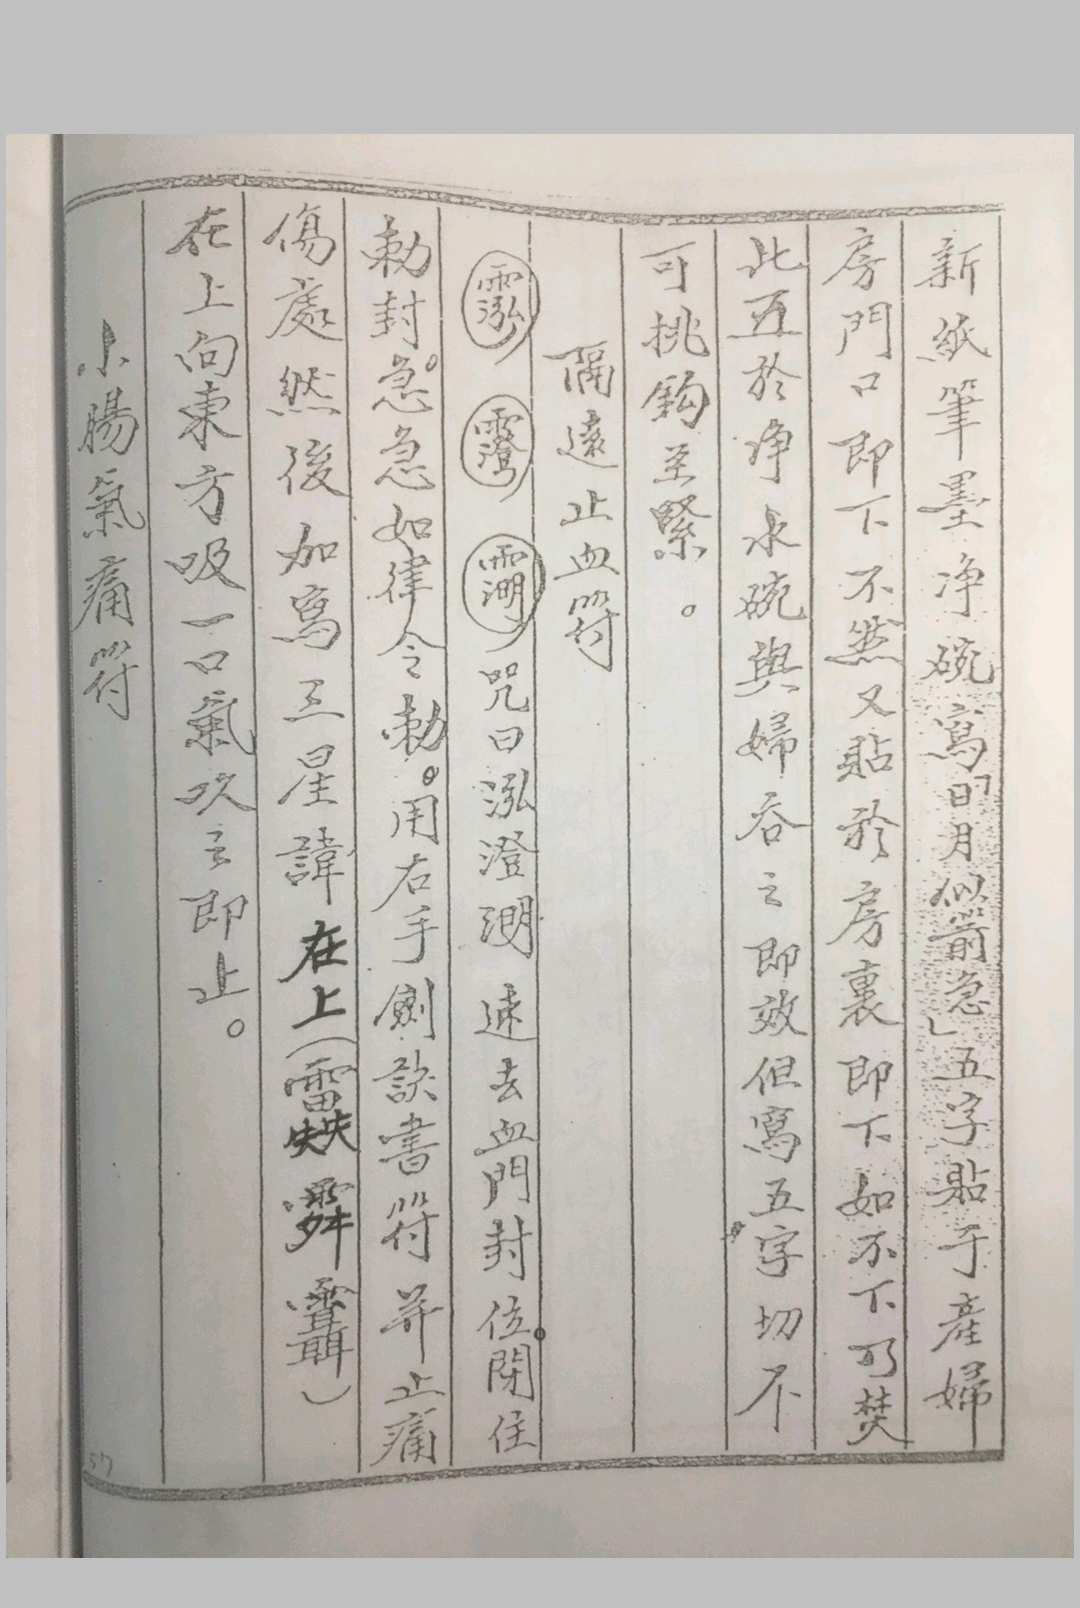 新紙筆墨净碗寫「日月似箭急」五字貼于產婦
房門口即下不然又貼於房裏即下如不下可焚
此五於净水碗與婦吞之即效但寫五字切不
可挑鈎至緊。
隔遠止血符
咒曰泓澄澖速去血門封位。閉住
勅封。急急如律令勅。用右手劍訣書符并止痛
傷處然後加寫三星諱在上(
在上向東方吸一口氣吹之即止。
小腸氣痛符
57